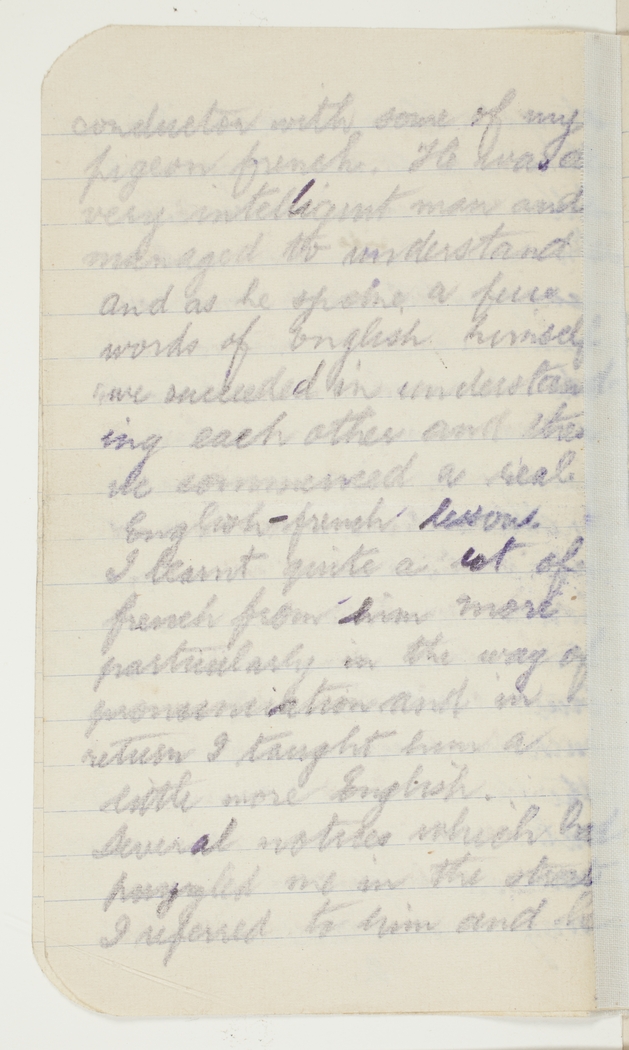 conductor with some of my
pigeon french. He was a
very intelligent man and
managed to understand
and as he spoke a few
words of English himself
we succeeded in understand
ing each other and then
we commenced a real
English-french lesson.
I learnt quite a lot of
french from him more
particularly in the way of
pronounciation and in
return I taught him a
little more English.
Several notices which had
puzzled me in the
I referred to him and he